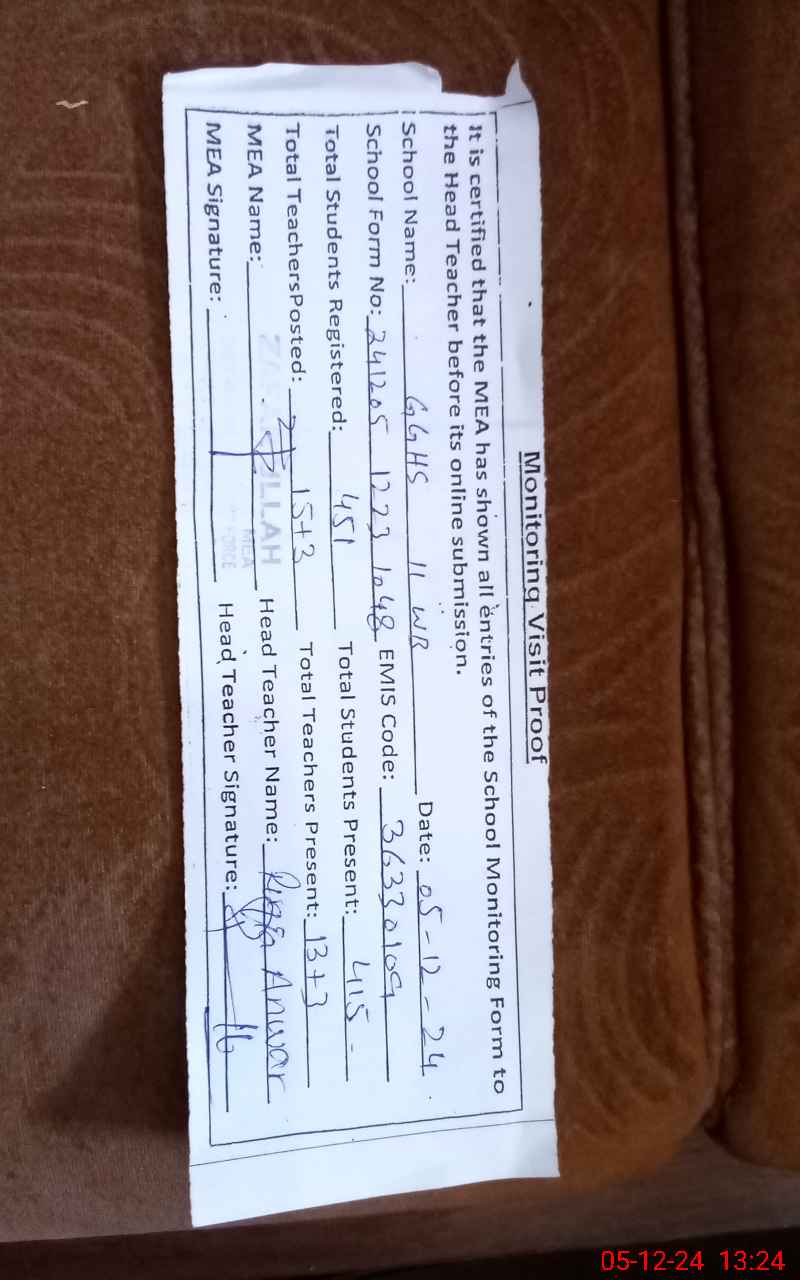 Monitoring Visit Proof
It is certified that the MEA has shown all entries of the School Monitoring Form to
the Head Teacher before its online submission.
School Name: GGHS 11 WB Date: 05-12-24
School Form No: 241205 1223 1048 EMIS Code: 36330109
Total Students Registered: 451 Total Students Present: 415
Total TeachersPosted: 15+3 Total Teachers Present: 13+3
MEA Name: Head Teacher Name: Anwar
MEA Signature: Head Teacher Signature:
LLAH
MEA
FORCE
05-12-24 13:24